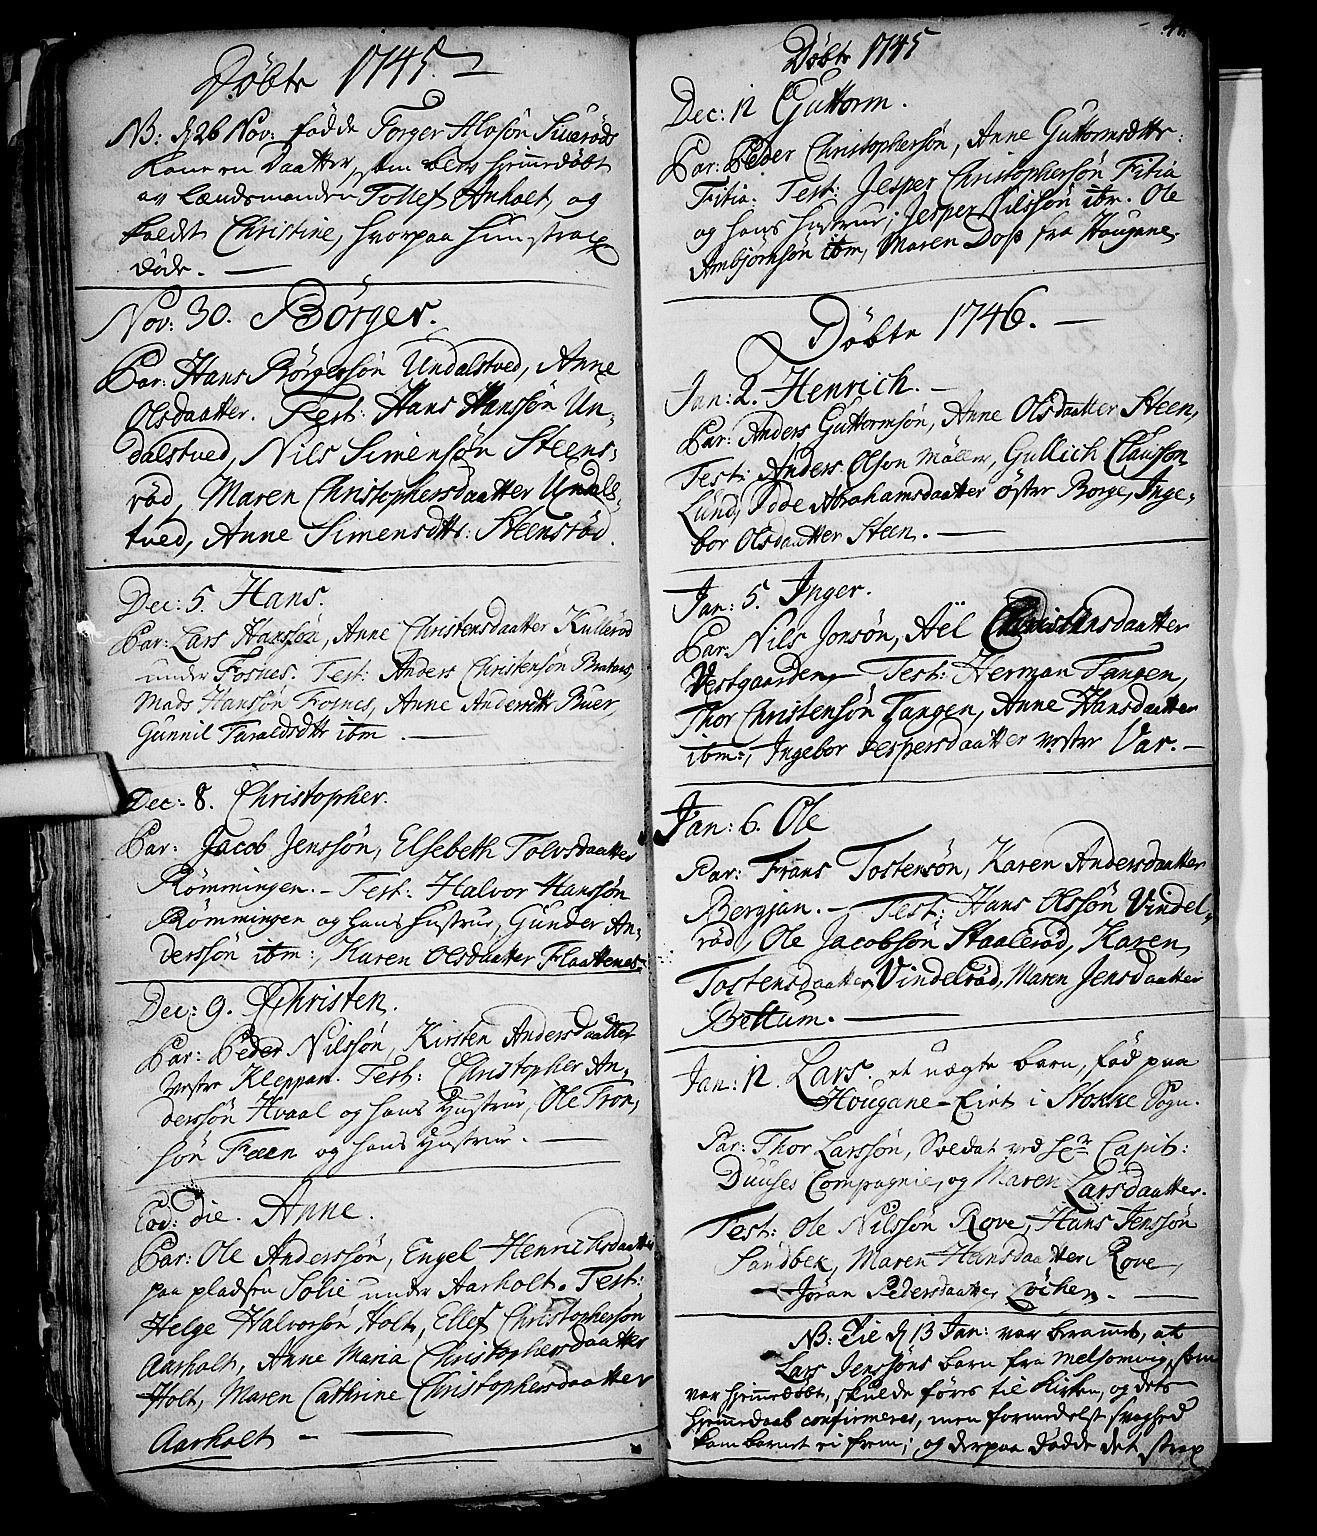 Döbte 1745.
NB: d 26 Nov: fødde Torger Alosön Siuerøds
Kone en Daatter, som blev hiemmedøbt
av Lændsmanden Tollef Anholt, og
kaldet Christine, hvorpaa hun strax
døde.
Nov: 30. Börger.
Par: Hans Börgersön Undalstved, Anne
Olsdaatter. Test: Hans Hanssön Un-
dalstved, Nils Simensön Steens-
röd, Maren Christophersdaatter Undals-
tved, Anne Simensdttr: Steensröd.
Dec: 5. Hans.
Par: Lars Hanssön, Anne Christensdaatter Kulleröd
under Fosnes. Test: Anders Christensön Brataas,
Mads Hansön Fosnes, Anne Andersdtt Buer,
Gunnil Taraldsdtt ibm.
Dec: 8. Christopher.
Par: Jacob Jenssön, Elsebeth Tolvsdaatter
Römmingen. - Test: Halvor Hanssön
Römmingen og hans Hustrue, Gunder An-
derssön ibm:, Karen Olsdaatter Flaattenes.
Dec: 9. Christen.
Par: Peder Nilssön, Kirsten Andersdaatter
vestre Kleppan. Test: Christopher An-
derssön Hvaal og hans Hustrue, Ole Tron-
sön Feen og hans Hustrue.
Eod: die. Anne.
Par: Ole Anderssön, Engel Henrichsdaatter
paa pladsen Solie under Aarholt. Test:
Helge Halvorsön Holt, Ellef Christophersön
Aarholt, Anne Maria Christophersdaatter
Holt, Maren Cathrine Christophersdaatter
Aarholt
Döbte 1745
Dec: 12 Guttorm.
Par: Peder Christophersön, Anne Guttormsdttr:
Fitia. Test: Jesper Christophersön Fitia
og hans Hustrue, Jesper Nilssön ibm. Ole
Ambjörnsön ibm, Maren Doss fra Haugane.
Döbte 1746.
Jan: 2. Henrich.
Par: Anders Guttormsön, Anne Olsdaatter Steen,
Test: Anders Olson Möller, Gullich Clausson
Lund, Abrahamsdaatter öster Borge, Inge-
bor Olsdaatter Steen.
Jan: 5. Inger.
Par: Nils Jonsön, Aël Christensdaatter
Vestgaarden, Test: Herman Tangen,
Thor Christensön Tangen, Anne Hansdaatter
ibm:, Ingebor Jespersdaatter vester Var.
Jan: 6. Ole
Par: Frans Tostensön, Karen Andersdaatter
Bergjan. - Test: Hans Olssön Vindel-
röd, Ole Jacobsön Staaleröd, Karen
Tostensdaatter Vindelröd, Maren Jensdaatter
Bettum.
Jan: 12. Lars. et uægte barn, fød paa
Hougane-Eiet i Stokke Sogn.
Par: Thor Larssön, Soldat ved Hr Capit:
Duuses Compagnie, og Maren Larsdaatter.
Test: Ole Nilssön Rove, Hans Jenssön
Sandbek, Maren Hansdaatter Rove,
Jöran Pedersdaatter Löchen.
NB: Die d 13 Jan: var berammet, at
Lars Jenssöns barn fra Melsomvig, som
var hjemmedøbt, skulde føres til Kirken, og dets
hjemmedaab confirmeres, men formedelst svaghed
kom barnet ei frem; og derpaa dødde det strax